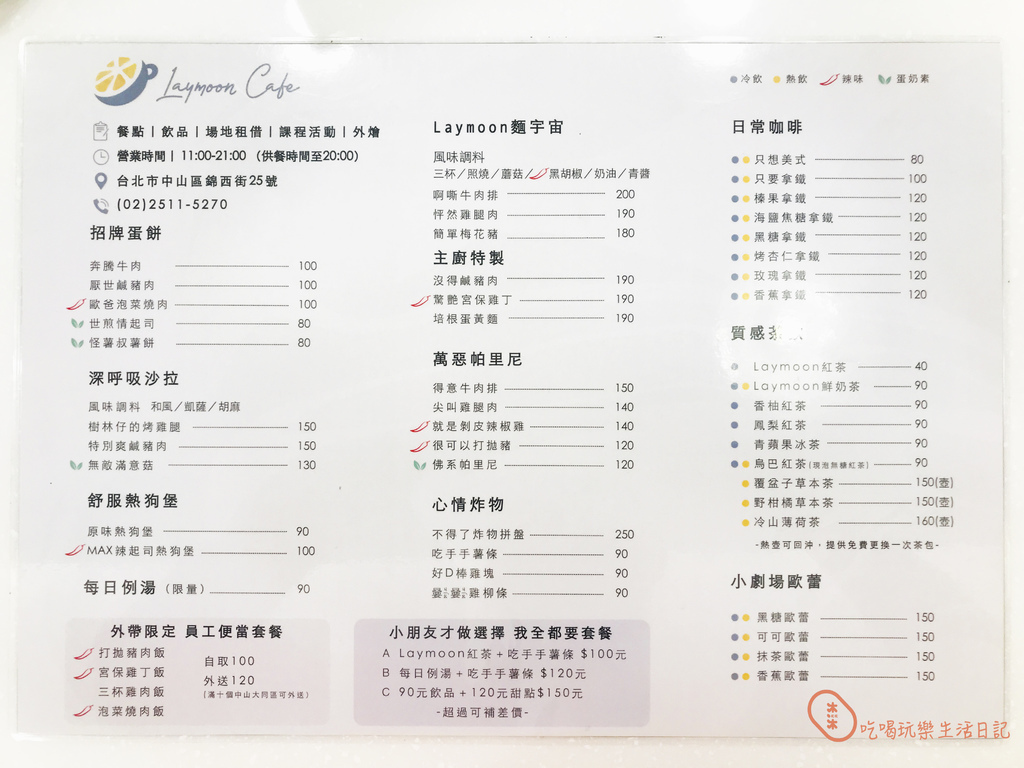 Laymoon Cafe
餐點|飲品|場地租借|課程活動|外燴
營業時間| 11:00-21:00 (供餐時間至20:00)
台北市中山區錦西街25號
(02)2511-5270
招牌蛋餅
奔騰牛肉 100
厭世鹹豬肉 100
歐爸泡菜燒肉 100
世煎情起司 80
怪薯叔薯餅 80
深呼吸沙拉
風味調料 和風/凱薩/胡麻
樹林仔的烤雞腿 150
特別爽鹹豬肉 150
無敵滿意菇 130
舒服熱狗堡
原味熱狗堡 90
MAX辣起司熱狗堡 100
每日例湯(限量) 90
外帶限定 員工便當套餐
打拋豬肉飯
宮保雞丁飯
三杯雞肉飯
泡菜燒肉飯
自取100
外送120
(滿十個中山大同區可外送)
Laymoon麵宇宙
風味調料
三杯/照燒/蘑菇/黑胡椒/奶油/青醬
啊嘶牛肉排 200
怦然雞腿肉 190
簡單梅花豬 180
主廚特製
沒得鹹豬肉 190
驚艷宮保雞丁 190
培根蛋黃麵 190
萬惡帕里尼
得意牛肉排 150
尖叫雞腿肉 140
就是剝皮辣椒雞 140
很可以打拋豬 120
佛系帕里尼 120
心情炸物
不得了炸物拼盤 250
吃手手薯條 90
好D棒雞塊 90
雞柳條 90
小朋友才做選擇 我全都要套餐
A Laymoon紅茶+吃手手薯條 $100元
B 每日例湯+吃手手薯條 $120元
C 90元飲品+120元甜點$150元
-超過可補差價-
冷飲 熱飲 辣味 蛋奶素
日常咖啡
只想美式 80
只要拿鐵 100
榛果拿鐵 120
海鹽焦糖拿鐵 120
黑糖拿鐵 120
烤杏仁拿鐵 120
玫瑰拿鐵 120
香蕉拿鐵 120
質感茶
Laymoon紅茶 40
Laymoon鮮奶茶 90
香柚紅茶 90
鳳梨紅茶 90
青蘋果冰茶 90
烏巴紅茶(現泡無糖紅茶) 90
覆盆子草本茶 150(壺)
野柑橘草本茶 150(壺)
冷山薄荷茶 160(壺)
-熱壺可回沖,提供免費更換一次茶包-
小劇場歐蕾
黑糖歐蕾 150
可可歐蕾 150
抹茶歐蕾 150
香蕉歐蕾 150
吃喝玩樂生活日記